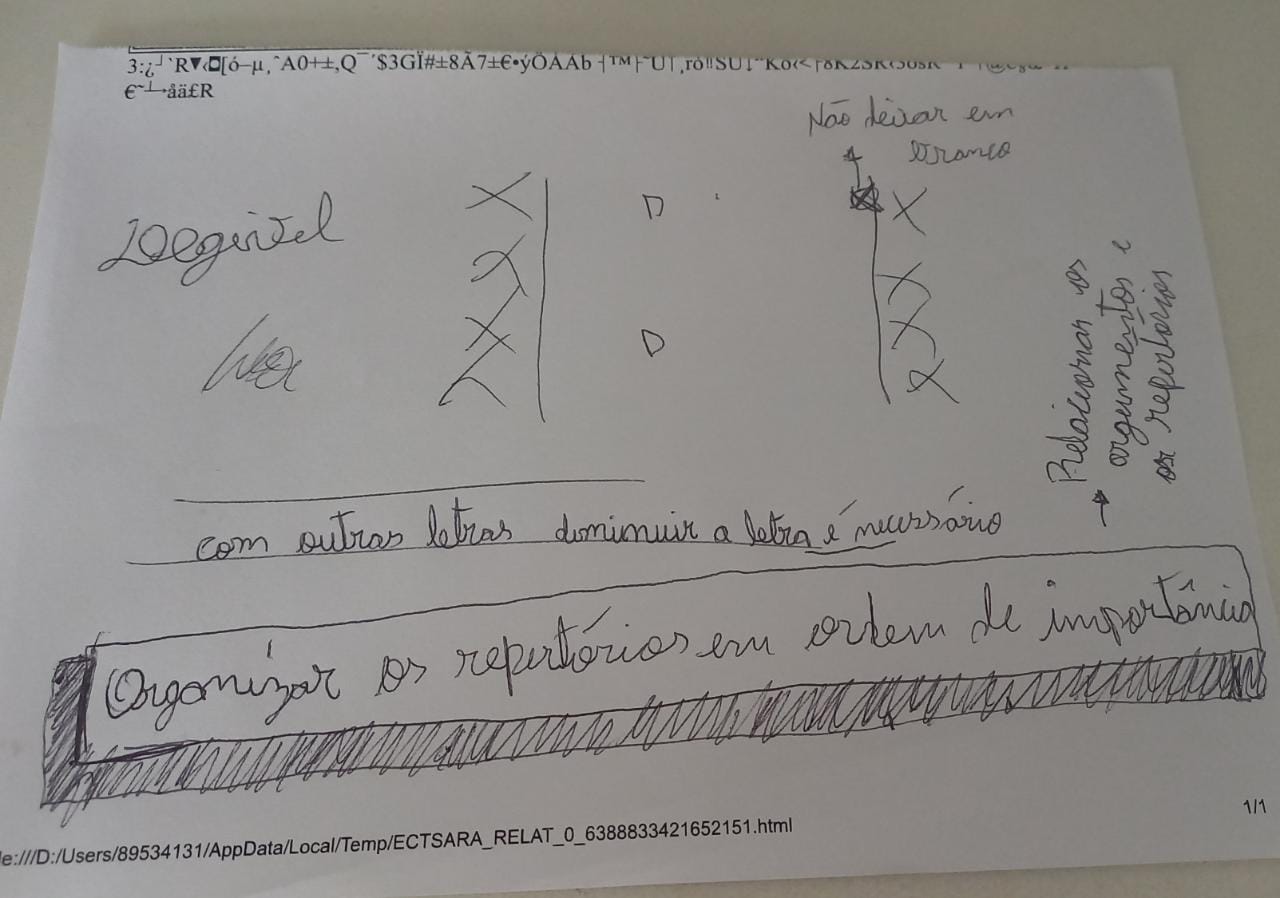 €˜┴→åä£R
Não deixar em
branco
Relacionar os
argumentos e
os repertorios
com outras letras diminuir a letra é necessário
Organizar os repertórios em ordem de importância
1/1
le:///D:/Users/89534131/AppData/Local/Temp/ECTSARA_RELAT_0_6388833421652151.html